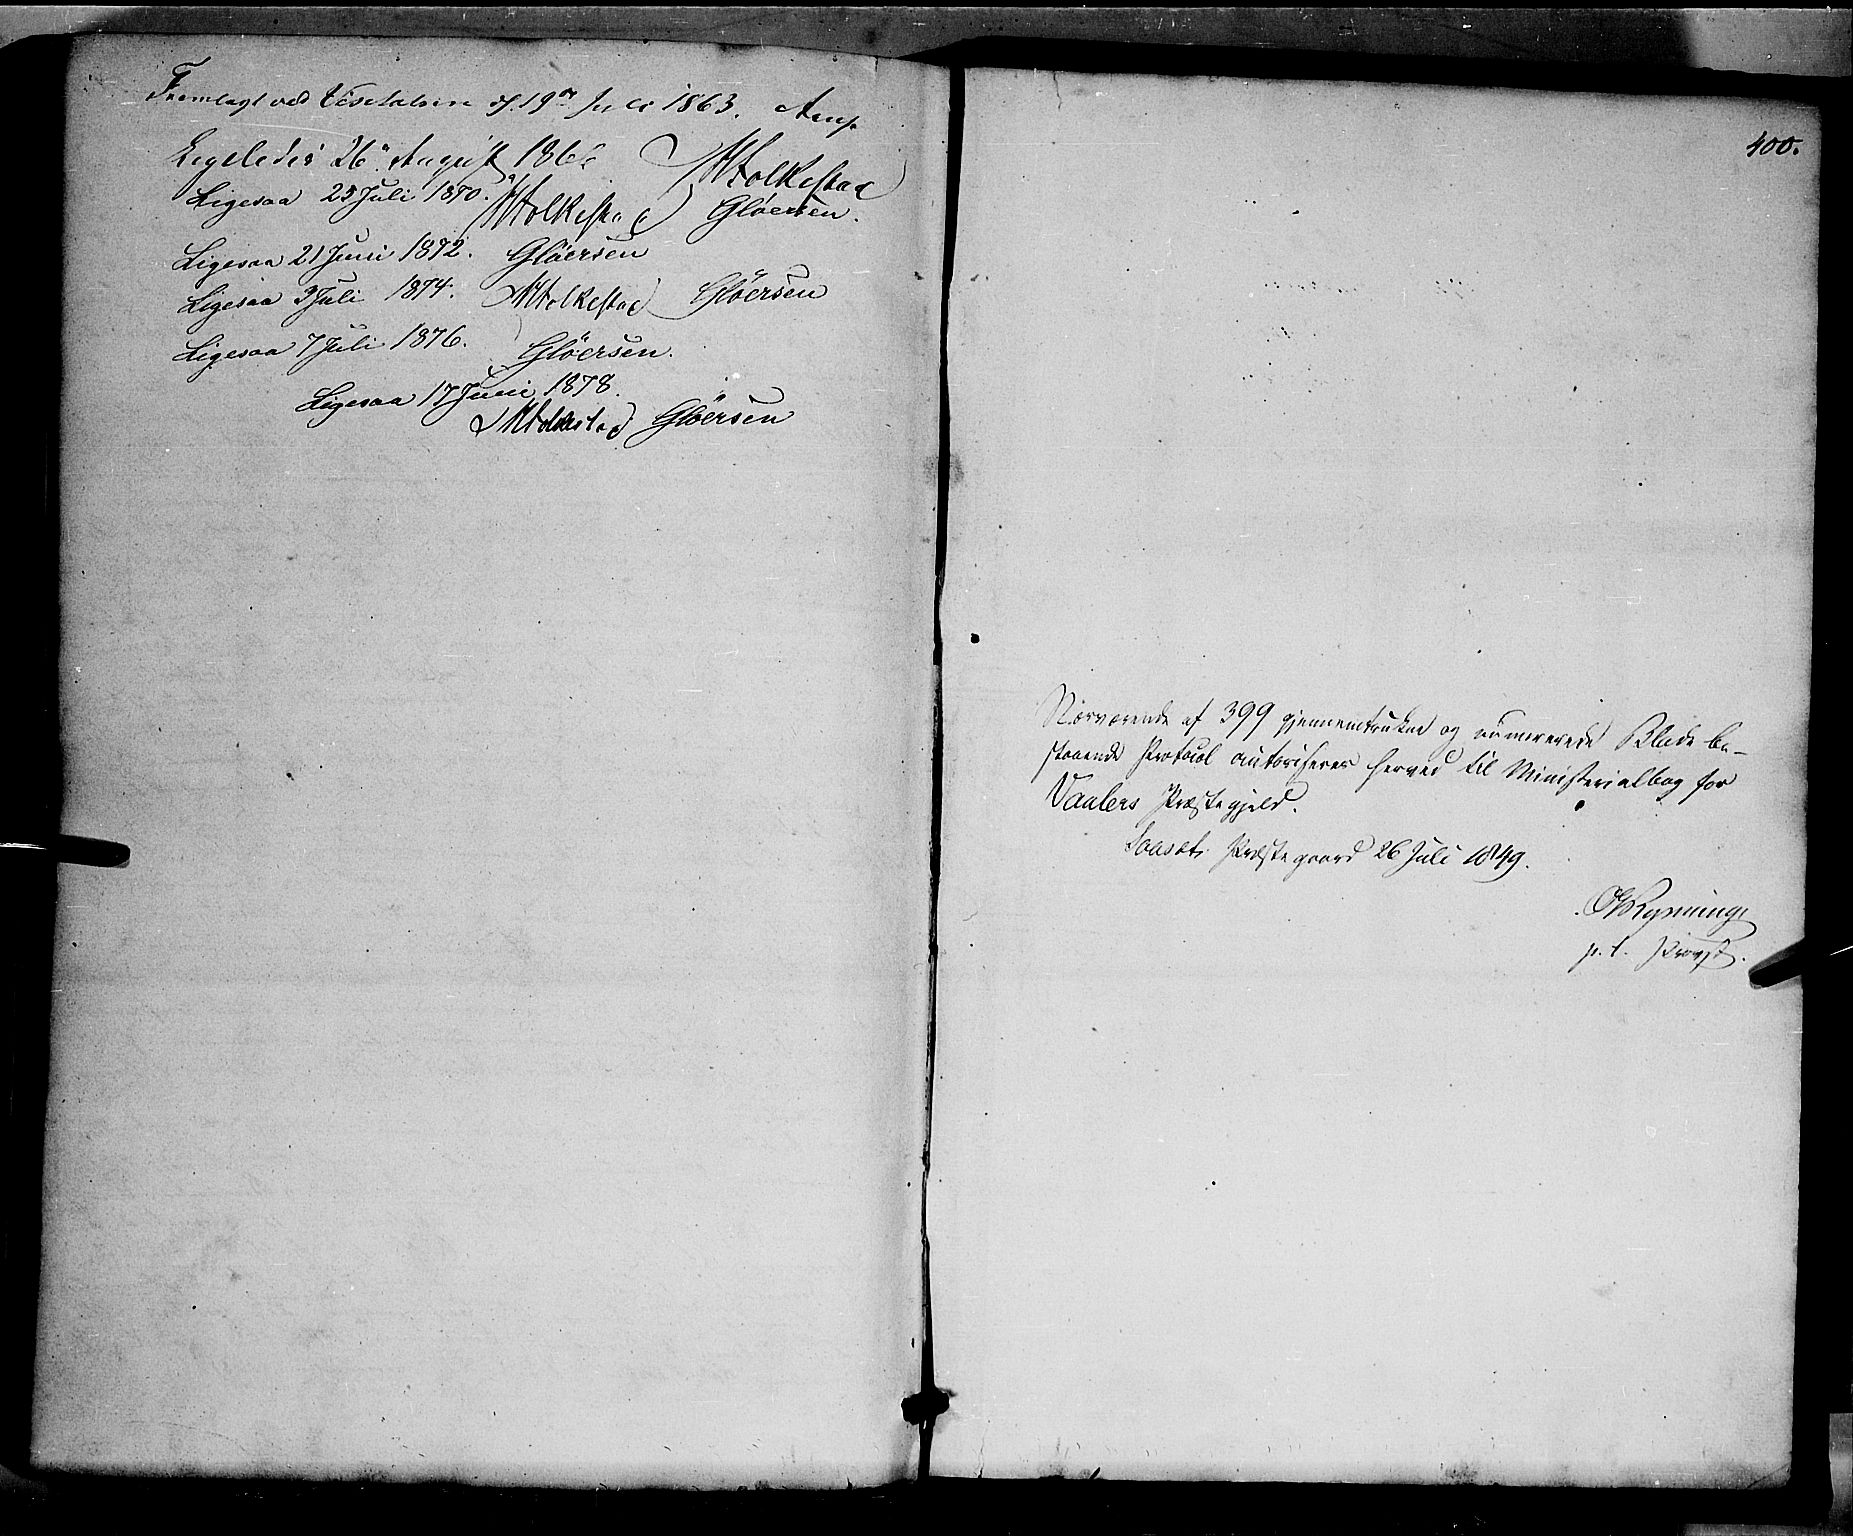 Fremlagt ved Visitatsen d. 19de Juli 1863. Arup
Ligeledes 26de August 186 H Folkestad
Ligesaa 25 Juli 1870. H Folkestad Gløersen.
Ligesaa 21 Juni 1872. Gløersen
Ligesaa 3 Juli 1874. H Folkestad Gløersen
Ligesaa 7 Juli 1876. Gløersen.
Ligesaa 17 Juni 1878.
H Folkestad Gløersen
400.
Nærværende af 399 gjennemtrukne og nümererede Blade be-
staaende Protocol autoriseres herved til Ministerialbog for
Vaalers Præstegjeld.
Præstegaard 26 Juli 1849.
Rynning
p. t. Provst.